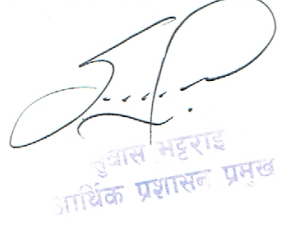 सुवास भट्टराई
आर्थिक प्रशासन प्रमुख